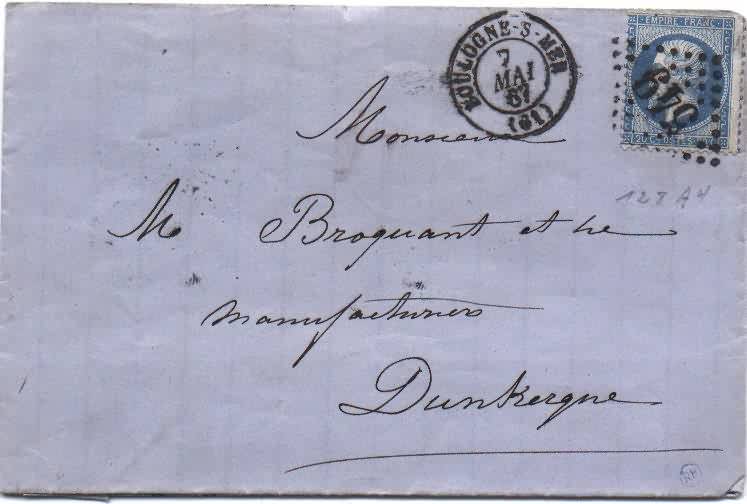 BOULOGNE-S-MER
7
MAI
67
(61)
EMPIRE FRANC
549
20 C POSTES 20 C
Monsieur
M Broquant et
manufacturiers
Dunkerque